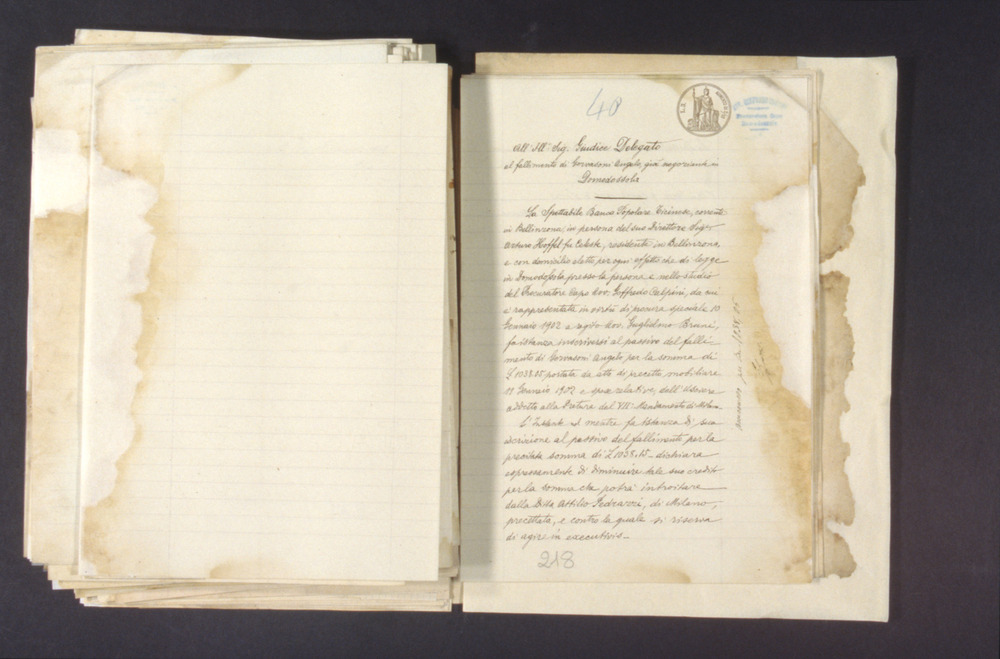 40
All' Ill.mo Sig. Giudice Delegato
al fallimento di Gorvasoni Angelo, già negoziante in
Domodossola
La Spettabile Banca Popolare Ticinese, corrente
in Bellinzona, in persona del suo Direttore Sig.r
Arturo Hoffel fu Celeste, residente in Bellinzona,
e con domicilio eletto per ogni effetto che di legge
in Domodossola presso la persona e nello studio
del Procuratore Capo Avv. Goffredo Calpini, da cui
è rappresentata in virtù di procura speciale 10
Gennaio 1902 a rogito Avv. Guglielmo Bruni,
fa istanza inscriversi al passivo del falli-
mento di Gorvasoni Angelo per la somma di
£ 1038.65 portata da atto di precetto mobiliare
11 Gennaio 1902 e spese relative, dell'Usciere
addetto alla Pretura del VII° Mandamento di Milano
L'Instante nel mentre fa istanza di sua
iscrizione al passivo del fallimento per la
precitata somma di £ 1038.65 - dichiara
espressamente di diminuire tale suo credito
per la somma che potrà introitare
dalla Ditta Attilio Pedrazzi, di Milano,
precettata, e contro la quale si riserva
di agire in executivis -
218
ammesso per £ 1038.65